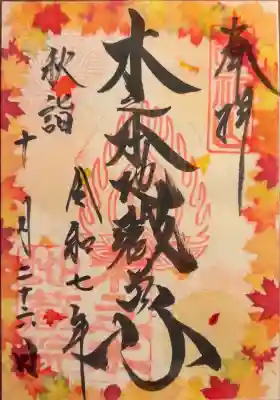 奉拝
木之本地蔵尊
令和七年
秋詣
十月二十六日